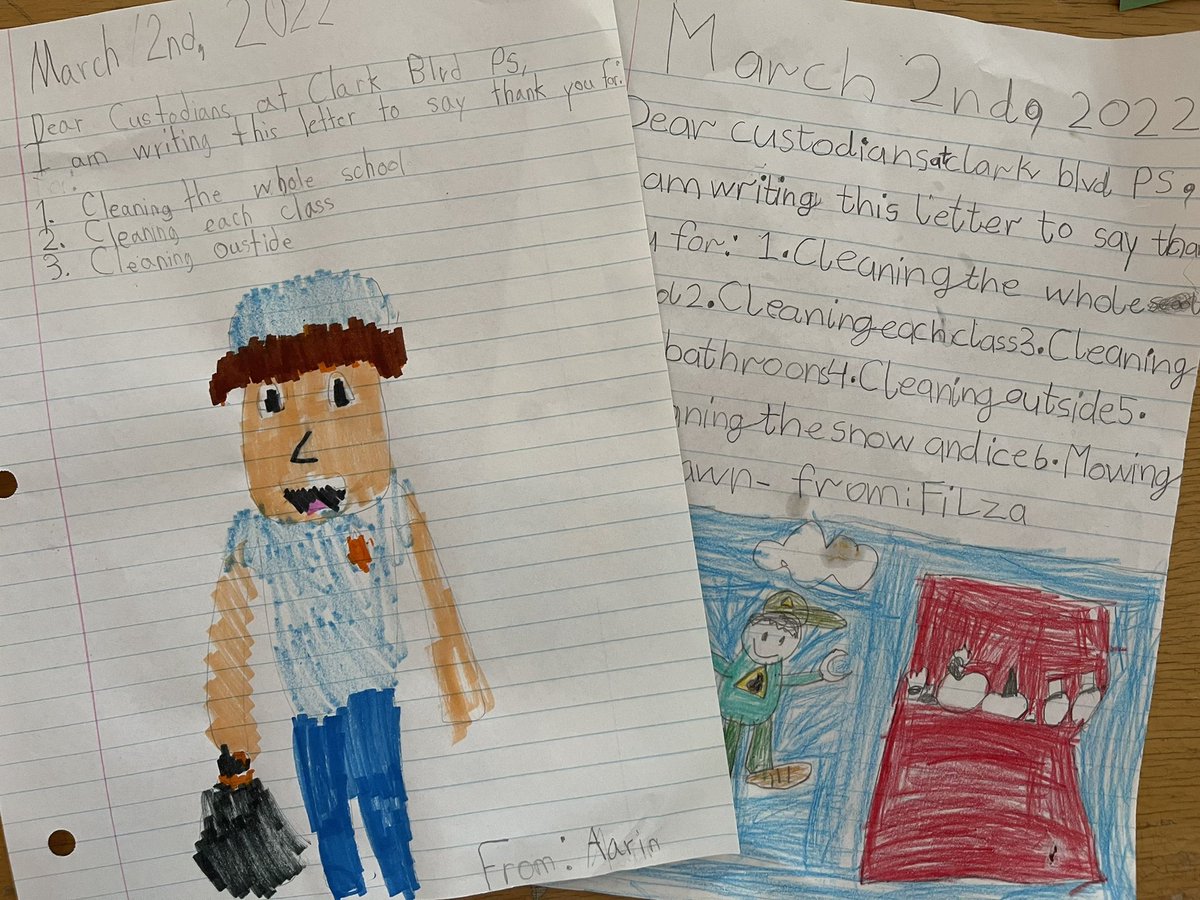 March 2nd, 2022
Dear Custodians at Clark Blvd PS,
I am writing this letter to say thank you for:
1. Cleaning the whole school
2. Cleaning each class
3. Cleaning oustide
From: Aarin
March 2nd, 2022
Dear custodians at clark blvd PS,
am writing this letter to say
for: 1. Cleaning the whole
2. Cleaning each class 3. Cleaning
bathroons 4. Cleaning outside 5.
the snow and ice 6. Mowing
from: Filza